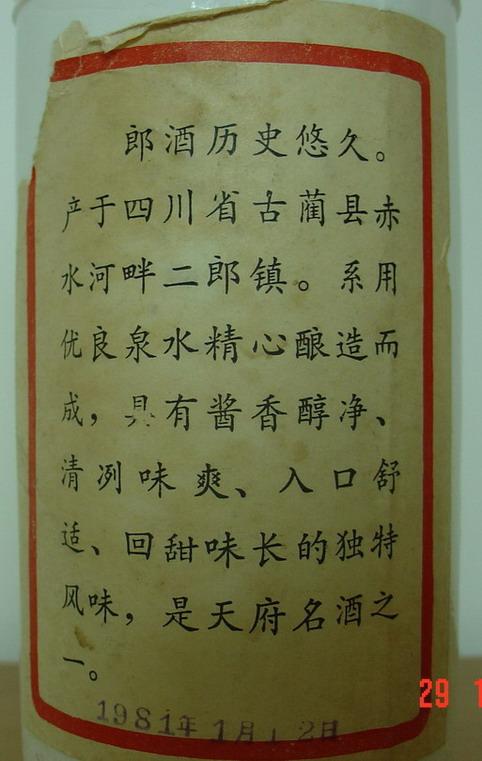 郎酒历史悠久。
产于四川省古蔺县赤
水河畔二郎镇。系用
优良泉水精心酿造而
成，具有酱香醇净、
清冽味爽、入口舒
适、回甜味长的独特
风味，是天府名酒之
一。
1981年1月12日
29 1